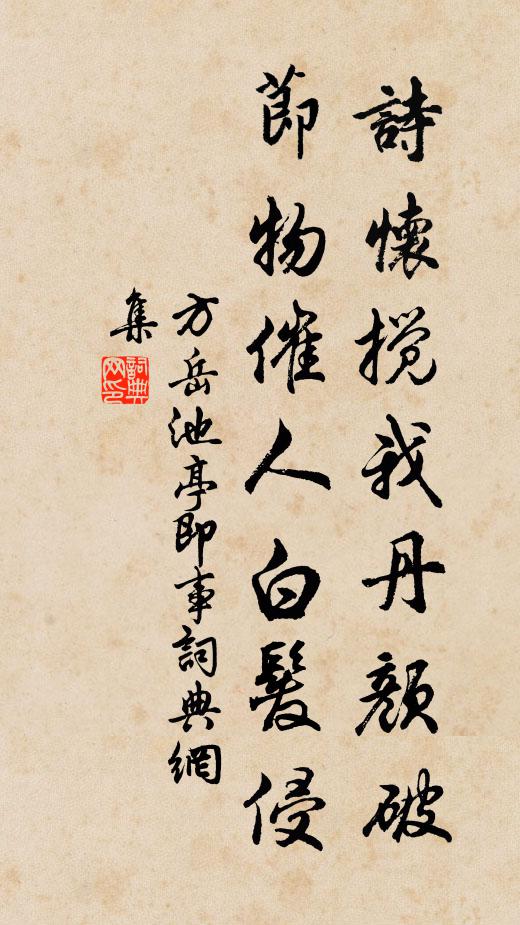 詩懷攪我丹顏破
節物催人白髮侵
方岳池亭即事詞典網
集
詞典網印